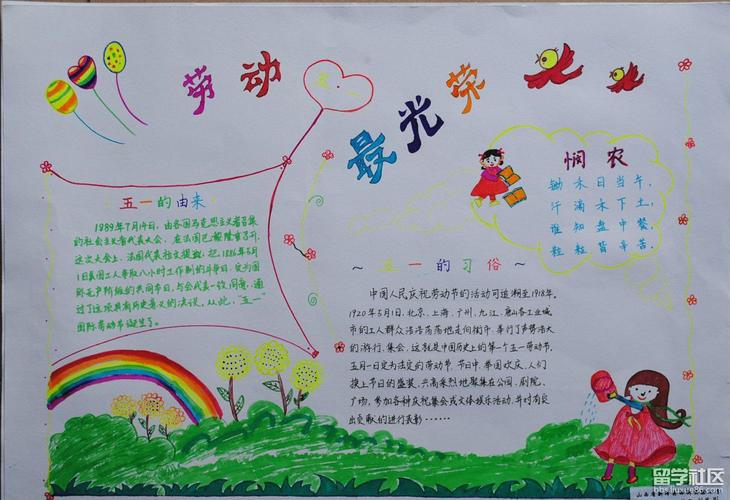 劳动
最光荣
五一
五一的由来
1889年7月14日,由各国马克思主义者召集
的社会主义者代表大会,在法国巴黎隆重召开。
这次大会上,法国代表拉文提议:把1886年5月
1日美国工人争取八小时工作制的斗争日,定为国
际无产阶级的共同节日,与会代表一致同意,通
过了这项具有历史意义的决议。从此,“五一”
国际劳动节诞生了。
悯农
锄禾日当午,
汗滴禾下土,
谁知盘中餐,
粒粒皆辛苦。
~五一的习俗~
中国人民庆祝劳动节的活动可追溯至1918年。
1920年5月1日,北京、上海、广州、九江、唐山各工业城
市的工人群众浩浩荡荡地走向街市、举行了声势浩大
的游行、集会。这就是中国历史上的第一个五一劳动节。
五月一日定为法定的劳动节。节日中,举国欢庆,人们
换上节日的盛装,兴高采烈地聚集在公园、剧院、
广场,参加各种庆祝集会或文体娱乐活动,并对有突
出贡献的进行表彰······
留学社区
bbs.liuxue86.com